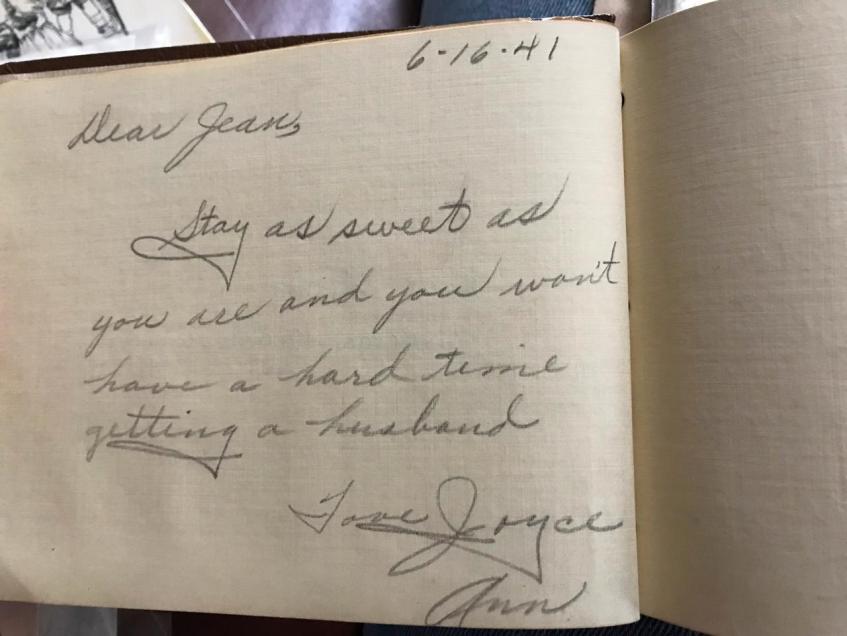 6-16-41
Dear Jean,
Stay as sweet as
you are and you won't
have a hard time
getting a husband
Love Joyce
Ann